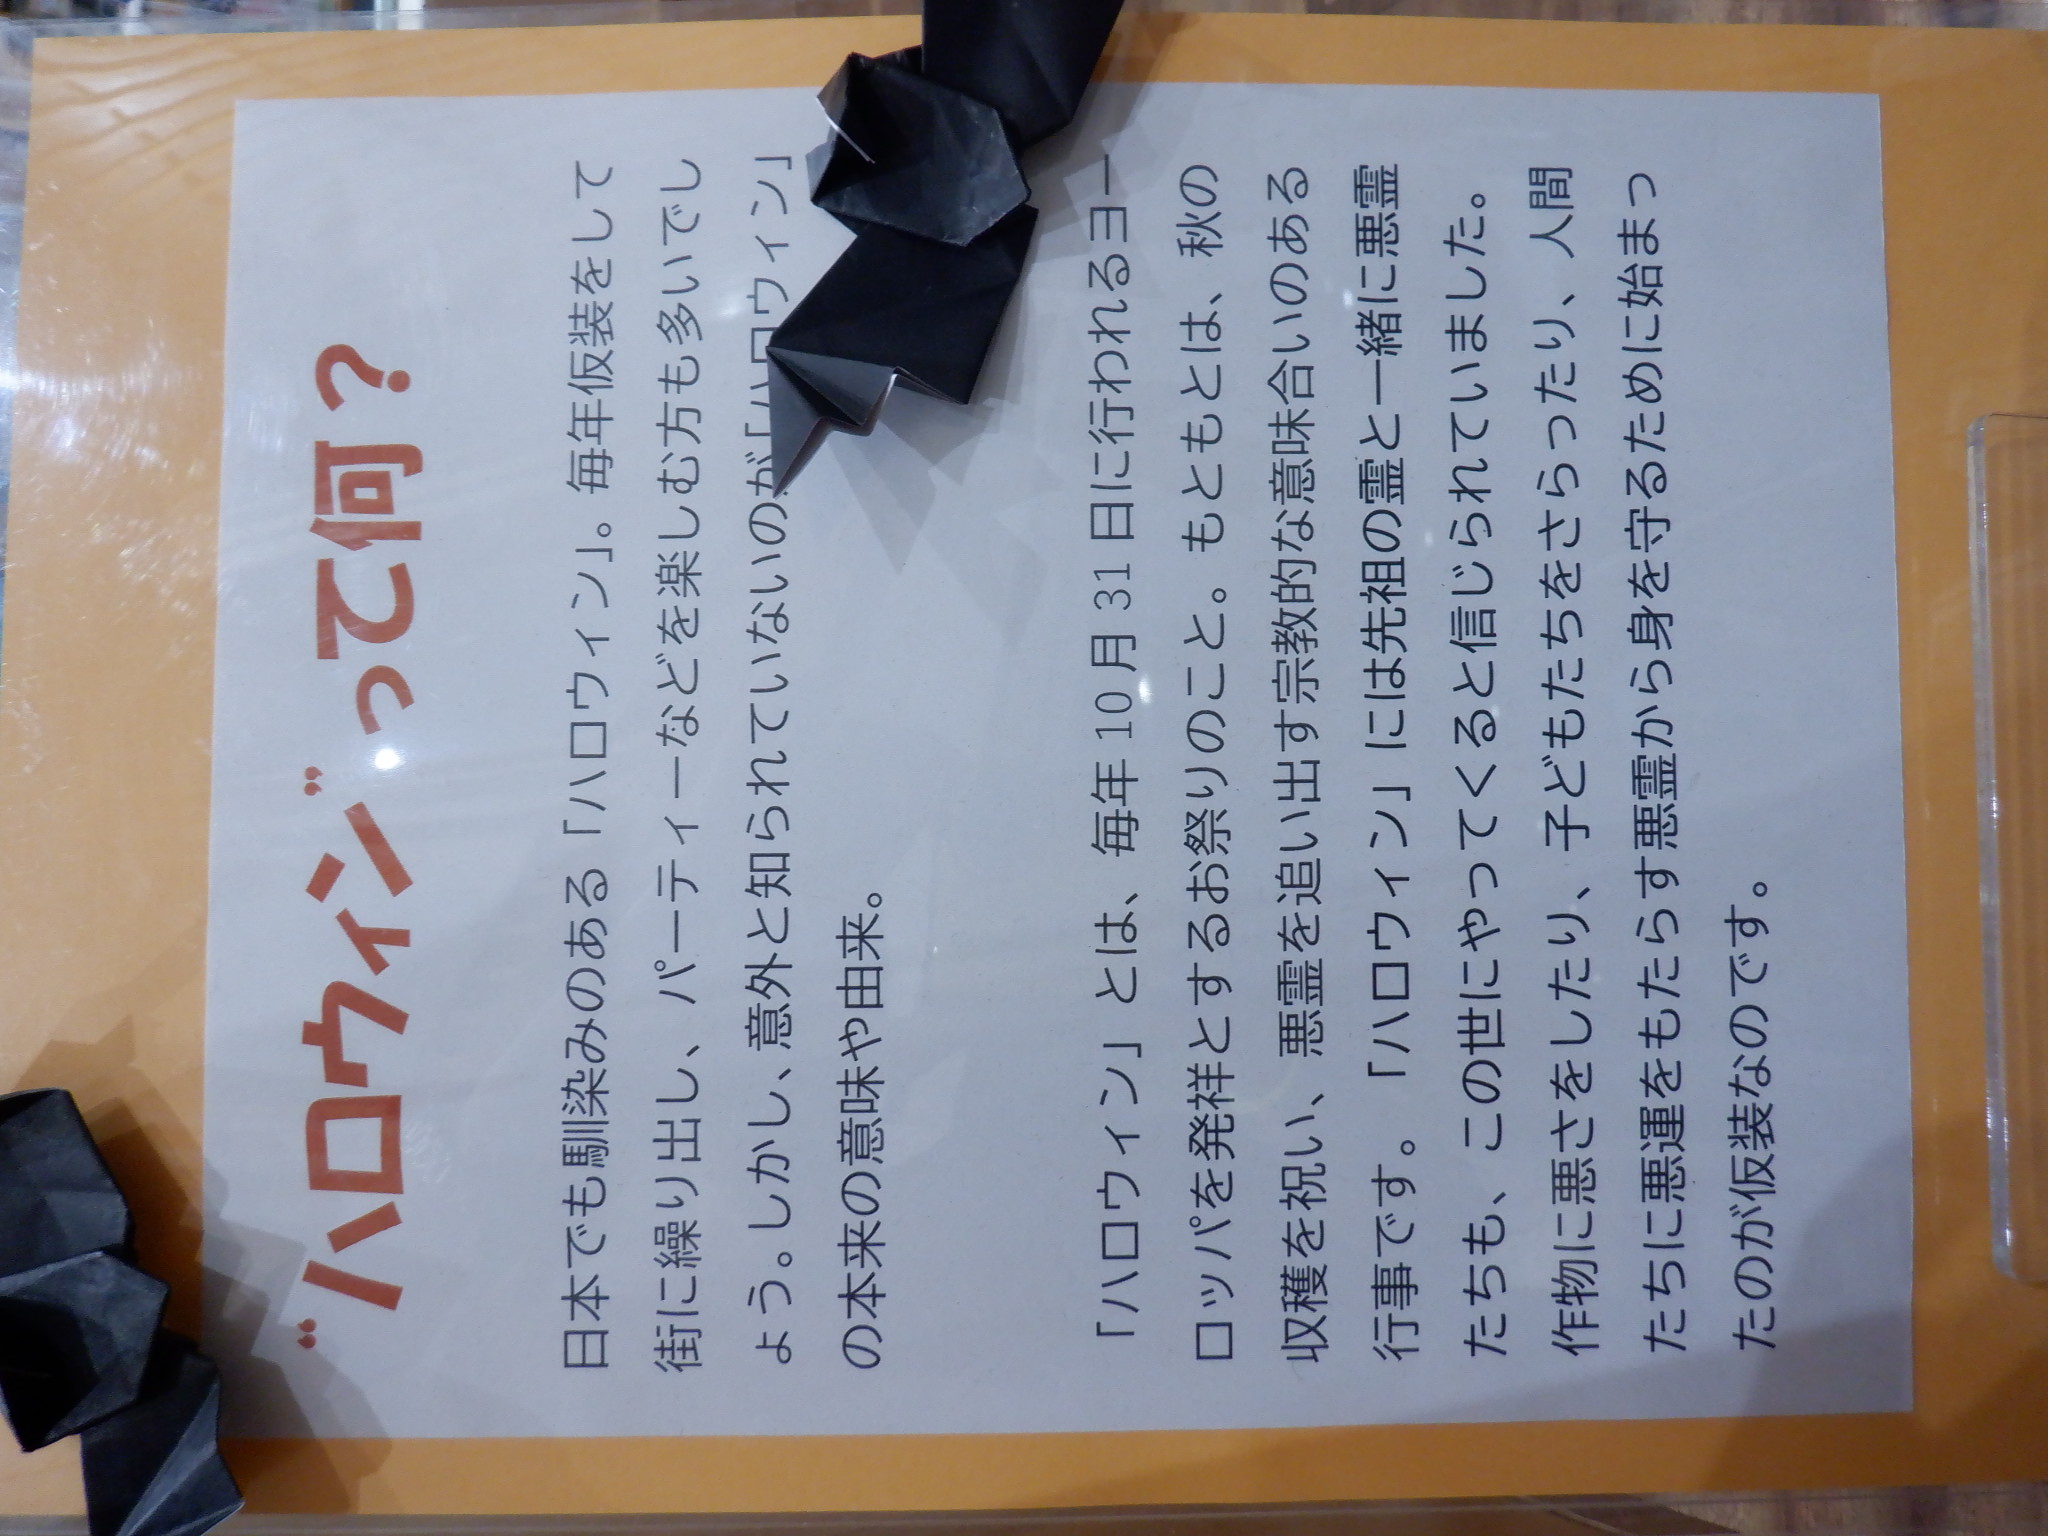 “ハロウィン”って何？
日本でも馴染みのある「ハロウィン」。毎年仮装をして
街に繰り出し、パーティーなどを楽しむ方も多いでし
ょう。しかし、意外と知られていないのが「ハロウィン」
の本来の意味や由来。
「ハロウィン」とは、毎年 10 月 31 日に行われるヨー
ロッパを発祥とするお祭りのこと。もともとは、秋の
収穫を祝い、悪霊を追い出す宗教的な意味合いのある
行事です。「ハロウィン」には先祖の霊と一緒に悪霊
たちも、この世にやってくると信じられていました。
作物に悪さをしたり、子どもたちをさらったり、人間
たちに悪運をもたらす悪霊から身を守るために始まっ
たのが仮装なのです。